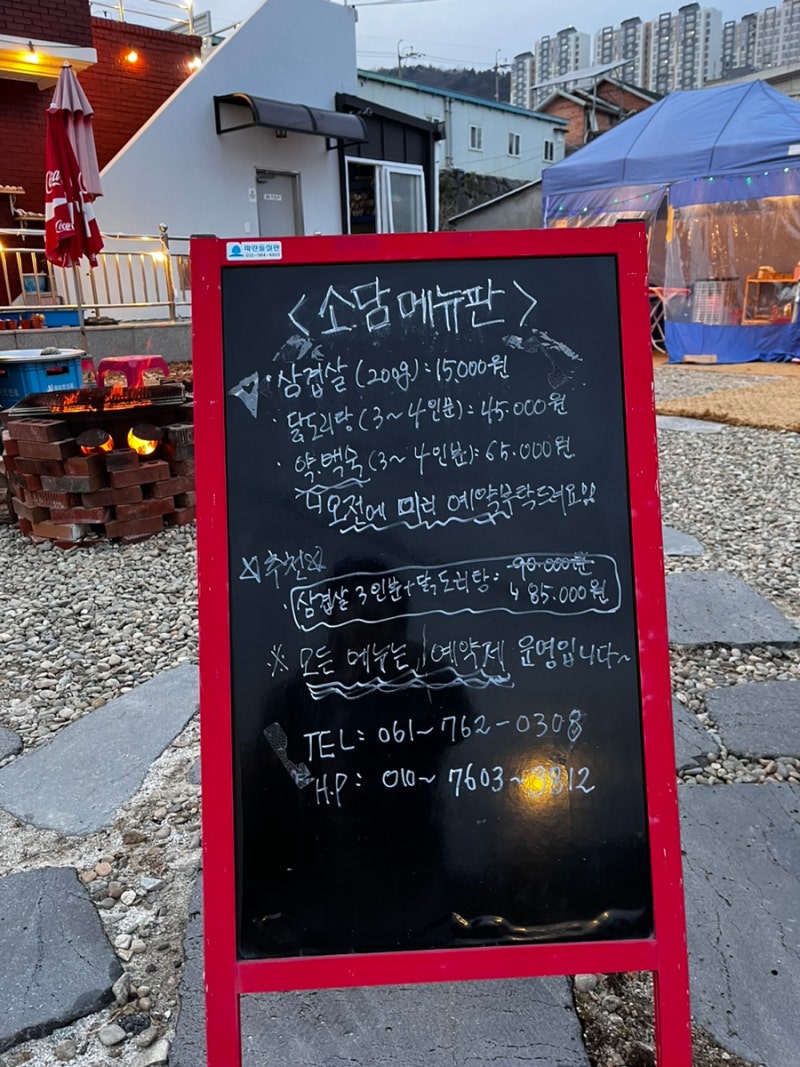 파란들칠판
Coca
Coca
<소담 메뉴판>
· 삼겹살 (200g) : 15,000원
· 닭도리탕 (3~4인분) : 45.000원
· 약.백숙 (3~4인분) : 65.000원
오전에 미리 예약부탁드려요
추천
· 삼겹살 3인분 + 닭도리탕 : 90.000원
85.000원
※ 모든 메뉴는 예약제 운영입니다~
TEL : 061~762-0308
H.P : 010~7603~3812